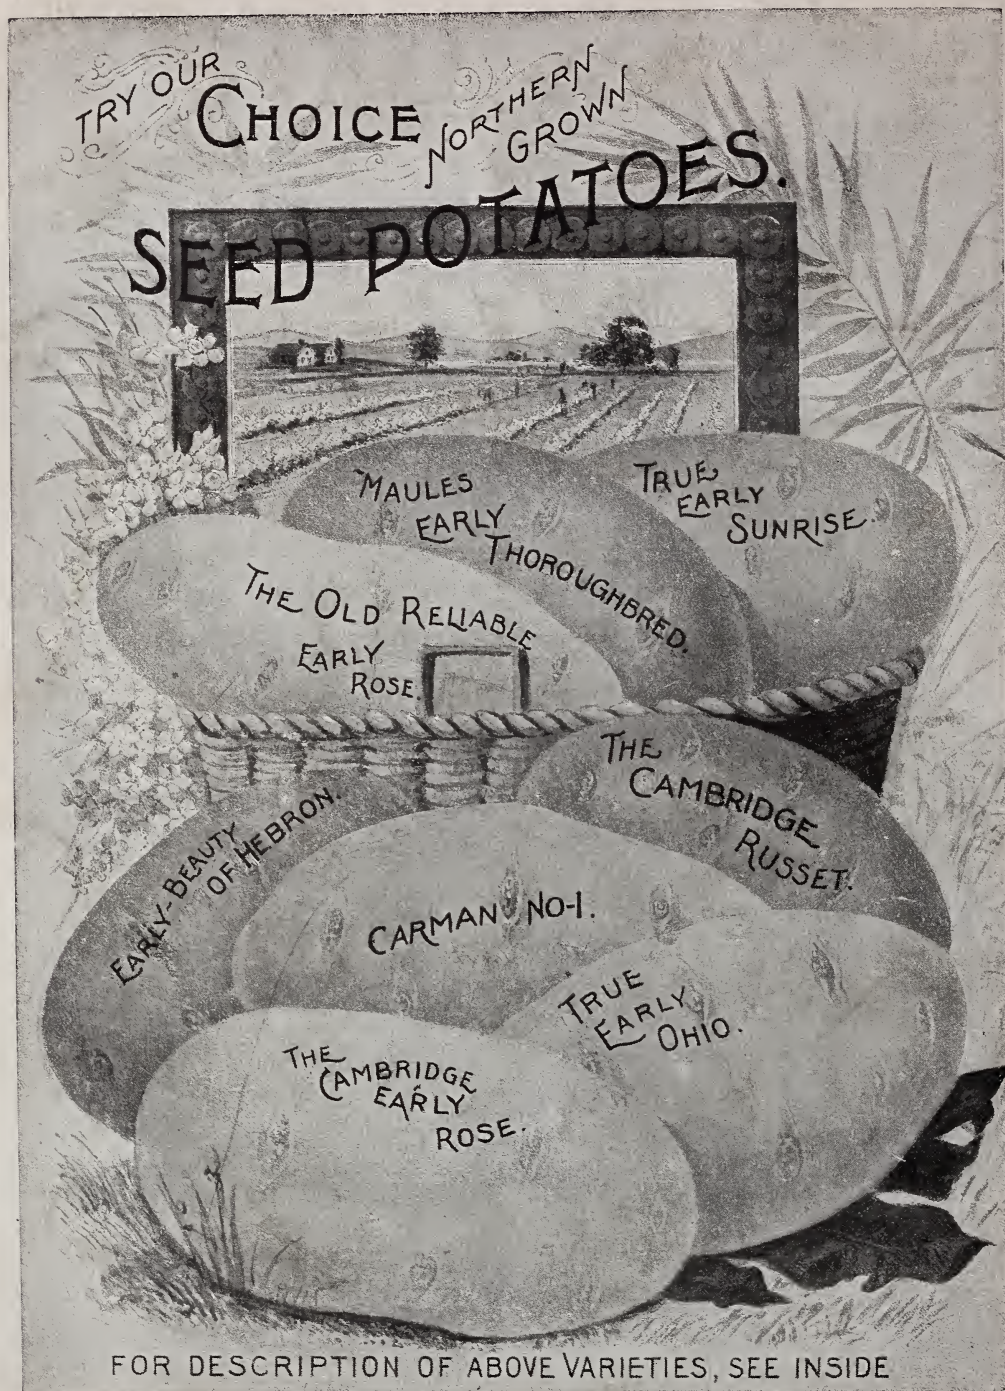 TRY OUR
CHOICE
NORTHERN
GROWN
SEED POTATOES.
MAULES
EARLY
THOROUGHBRED.
TRUE
EARLY
SUNRISE.
THE OLD RELIABLE
EARLY
ROSE.
THE
CAMBRIDGE
RUSSET.
EARLY-BEAUTY
OF HEBRON.
CARMAN NO-1.
TRUE
EARLY
OHIO.
THE
CAMBRIDGE
EARLY
ROSE.
FOR DESCRIPTION OF ABOVE VARIETIES, SEE INSIDE